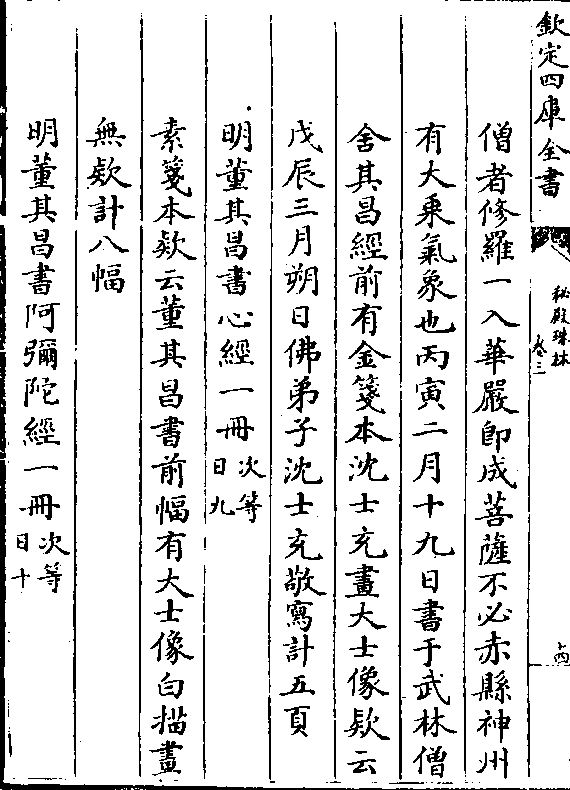 欽定四庫全書
秘殿珠林
卷三
十四
僧者修羅一入華嚴即成菩薩不必赤縣神州
有大乘氣象也丙寅二月十九日書于武林僧
舍其昌經前有金箋本沈士充畫大士像欵云
戊辰三月朔日佛弟子沈士充敬寫計五頁
明董其昌書心經一冊次等
日九
素箋本欵云董其昌書前幅有大士像白描畫
無欵計八幅
明董其昌書阿彌陀經一冊次等
日十